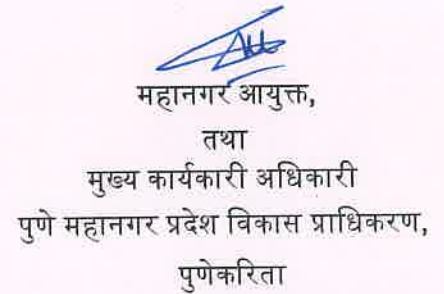 महानगर आयुक्त,
तथा
मुख्य कार्यकारी अधिकारी
पुणे महानगर प्रदेश विकास प्राधिकरण,
पुणेकरिता